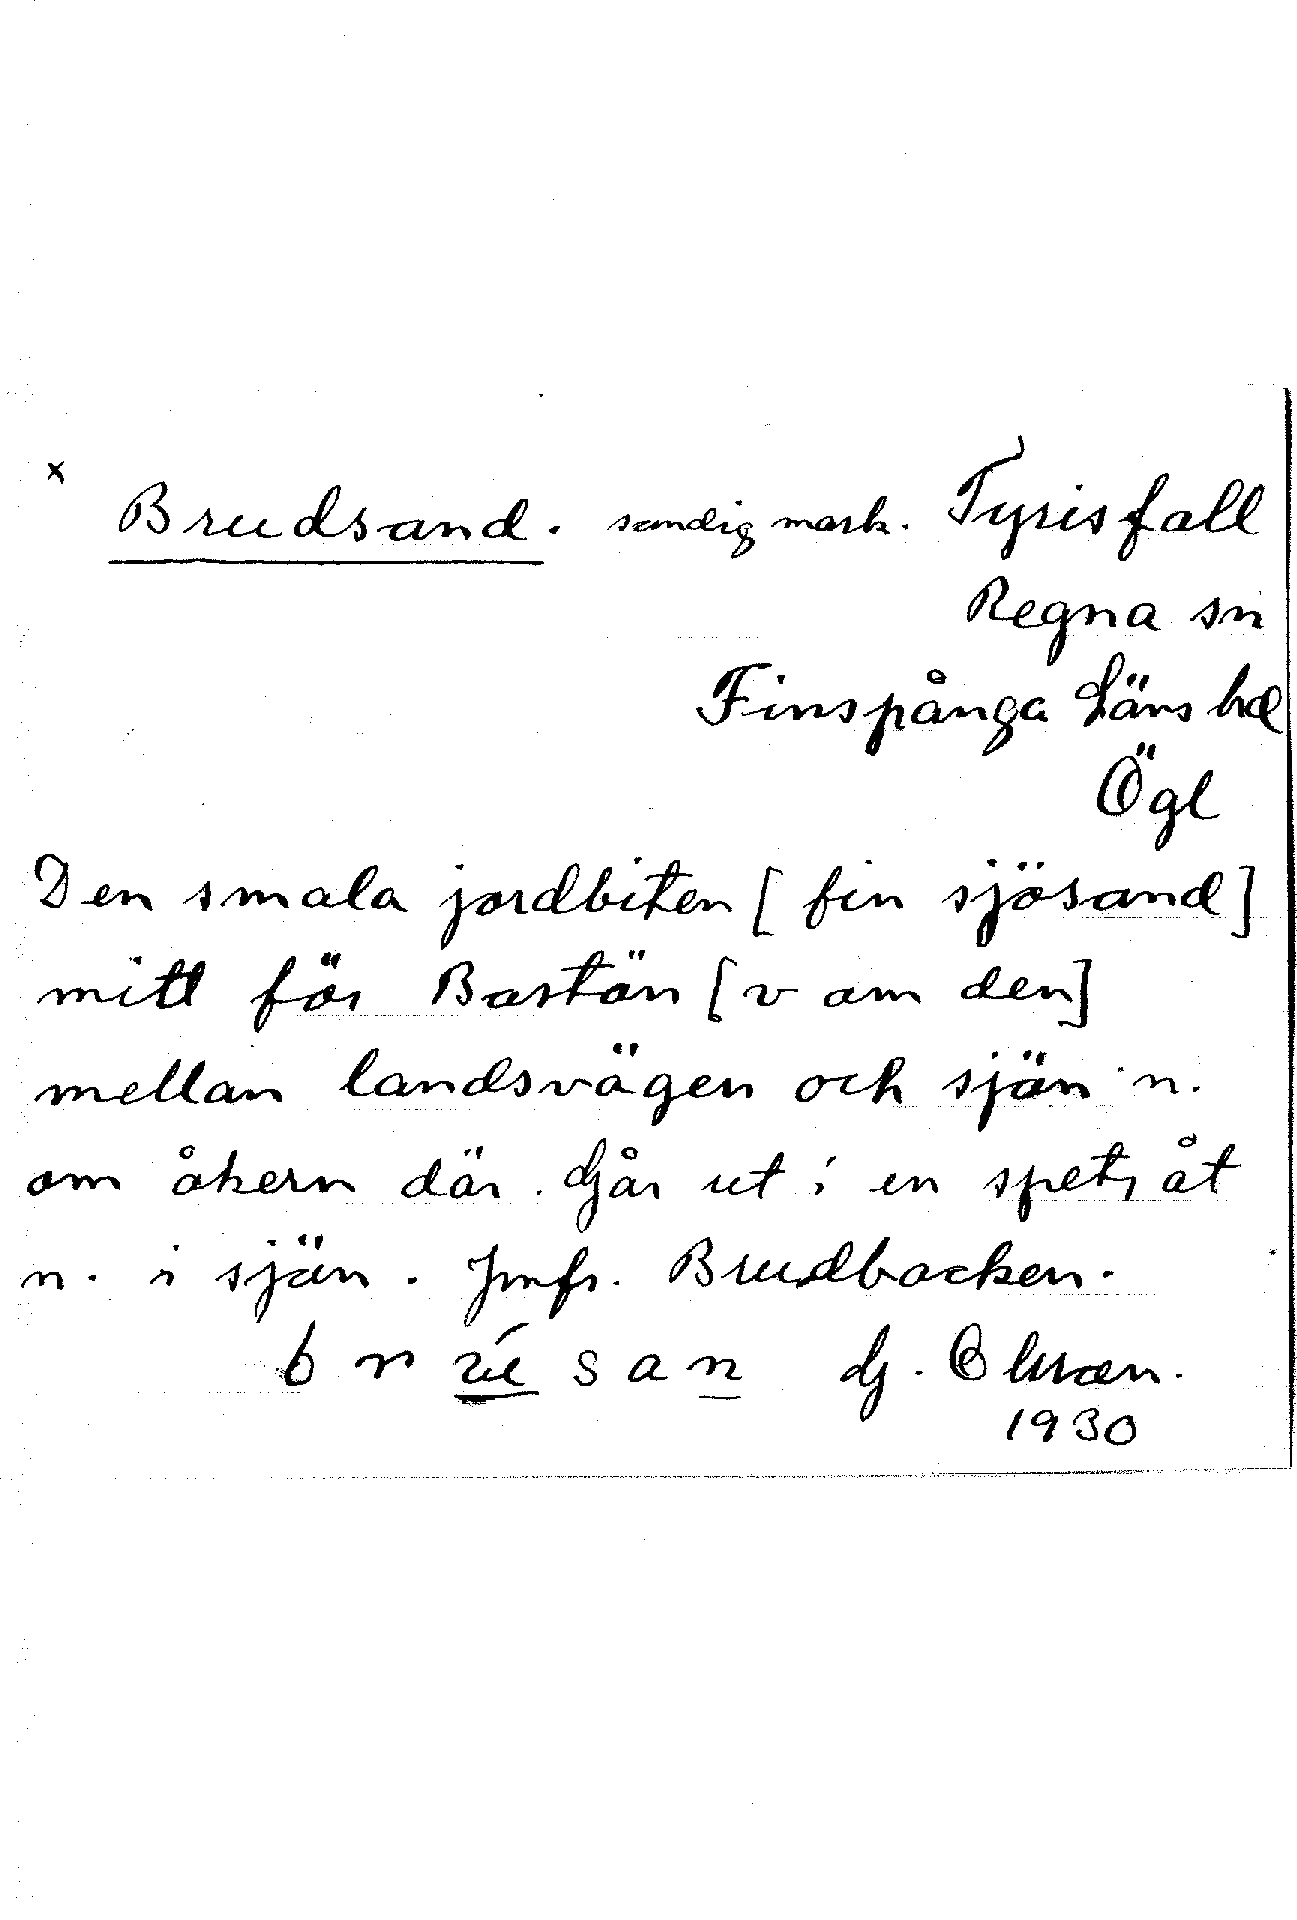 x
Brudsand. sandig mark. Tyrisfall
Regna sn
Finspånga Läns hd
Ögl
Den smala jordbiten [fin sjösand]
mitt för Bastön [v om den]
mellan landsvägen och sjön n.
om åkern där. Går ut i en spets åt
n. i sjön. Jmfr. Brudbacken.
br san G.
1930